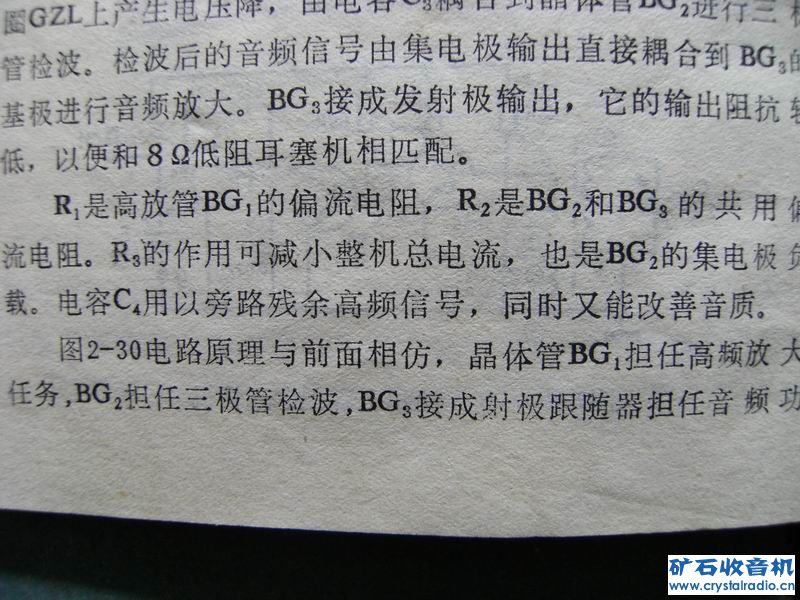 圈GZL上产生电压降，由电容C₃耦合到晶体管BG₂进行三极
管检波。检波后的音频信号由集电极输出直接耦合到BG₃的
基极进行音频放大。BG₃接成发射极输出，它的输出阻抗较
低，以便和8Ω低阻耳塞机相匹配。
R₁是高放管BG₁的偏流电阻，R₂是BG₂和BG₃的共用偏
流电阻。R₃的作用可减小整机总电流，也是BG₂的集电极负
载。电容C₄用以旁路残余高频信号，同时又能改善音质。
图2-30电路原理与前面相仿，晶体管BG₁担任高频放大
任务，BG₂担任三极管检波，BG₃接成射极跟随器担任音频功
矿石收音机
www.crystalradio.cn